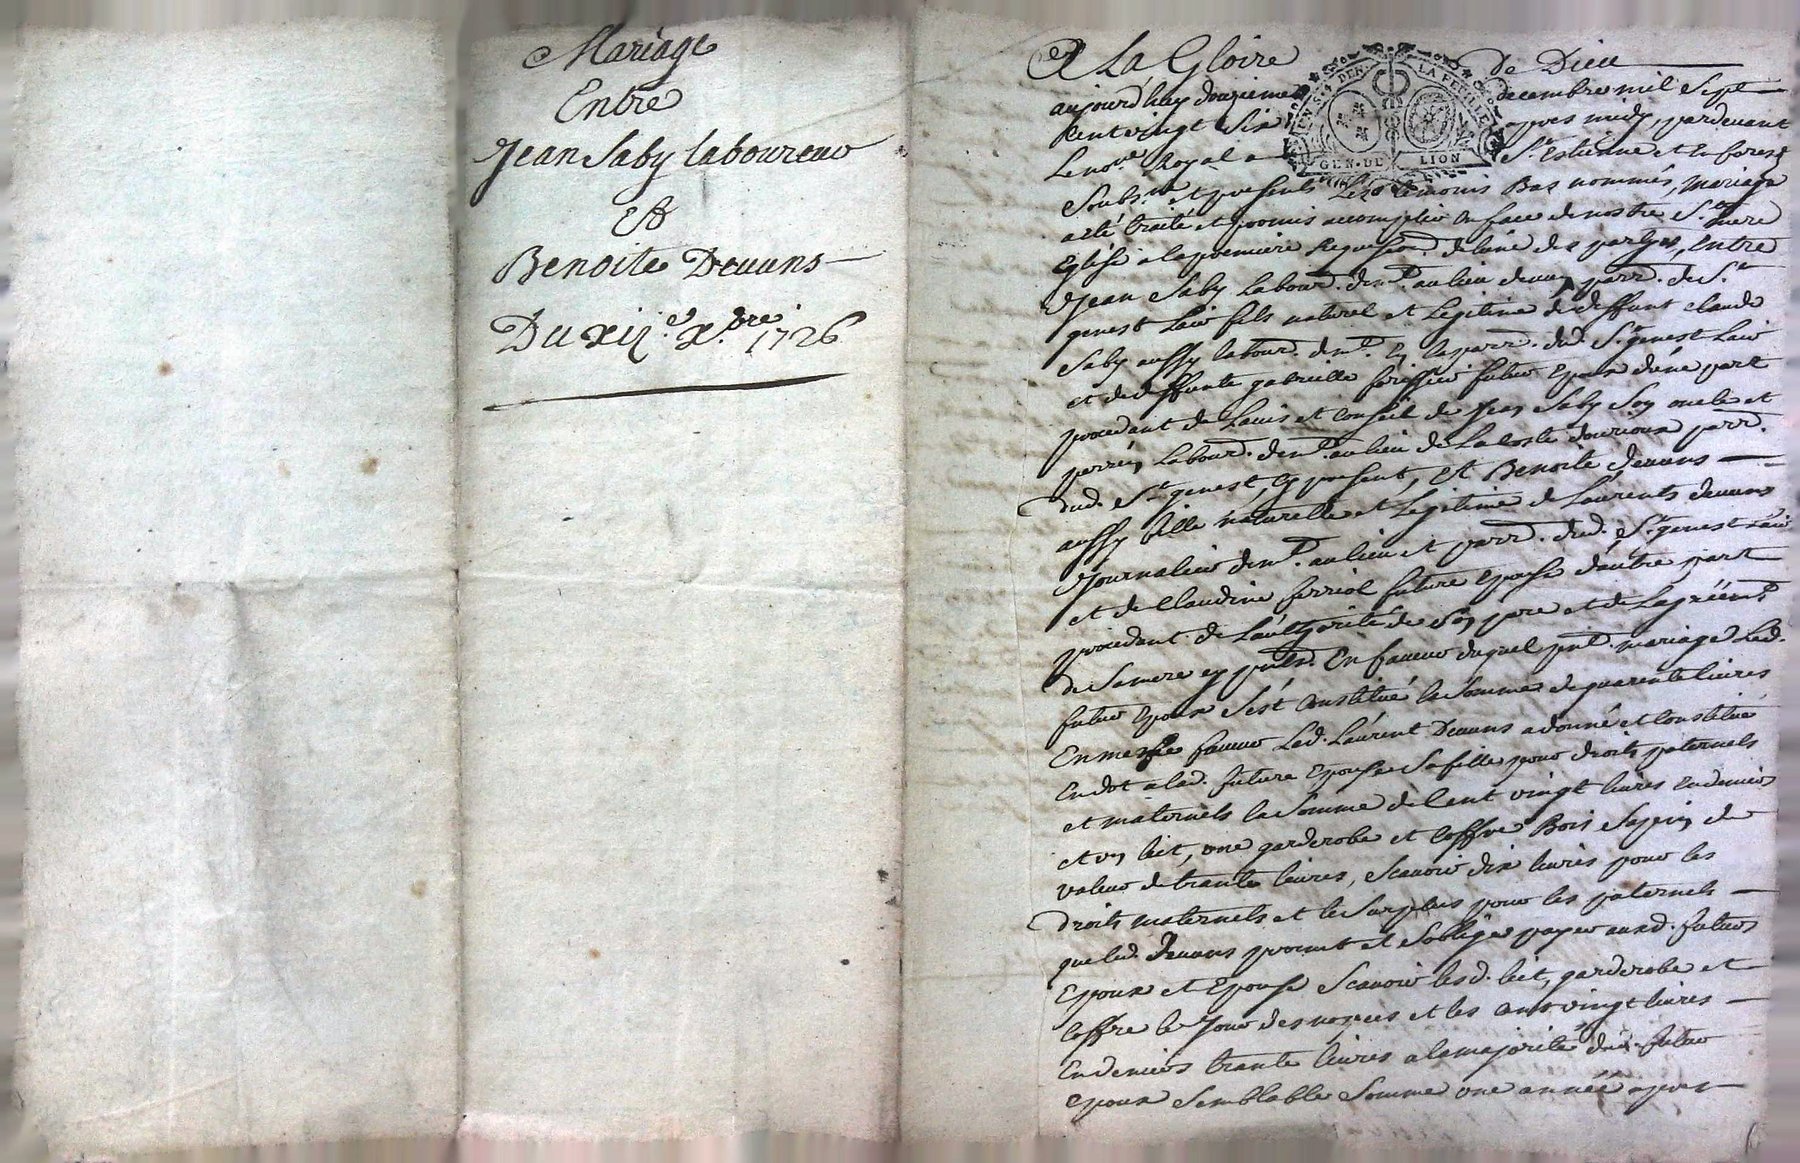 Mariage
Entre
Jean Saby laboureur
Et
Benoite Deuuns
Du xij.e x.bre 1726
A La Gloire de Dieu
aujourd'huy douzieme decembre mil Sept
Cent vingt Six apres midy, pardeuant
Le no.re Royal a St Estienne et En forest
Soubs.né et presents Les temoins Bas nommés, mariage
a esté traité et promis accomplir En face de nostre Ste mere
Eglise a la premiere Requision. de l'une des partyes, Entre
Jean Saby Labour. dem.t au lieu de parr. de St
genest Lair fils naturel et Legitime de deffunt Claude
Saby aussy labour. dem.t En la parr. dud. St genest Lair
et de deffunte gabrielle forissier futur Epoux d'une part
procedant de Lauis et Conseil de Jean Saby Son oncle et
perrein Labour. dem.t au lieu de La Coste parr.
dud. St genest, Cy present, Et Benoite deuuns
aussy fille naturelle et Legitime de Laurents deuuns
Journalier dem.t au lieu et parr. dud. St genest Lair
et de Claudine ferriol future Epouse d'autre part
procedant de L'authorité de Son pere et de Lagréem.t
de Samere cy pnts. En faueur duquel pnt. mariage Led.
futur Epoux s'est Constitué la Somme de quarente liures
En mesme faueur Led. Laurent Deuuns a donné et Constitué
En dot a lad. future Epouse Sa fille pour droits paternels
et maternels la Somme de Cent vingt liures En deniers
et un lict, une garderobe et Coffre Bois Sapin de
valeur de trante liures, Scauoir dix liures pour les
droits maternels et le Surplus pour les paternels
que led. Deuuns promet et s'oblige payer ausd. futurs
Epoux et Epouse Scauoir lesd. lict, garderobe et
Coffre le Jour des nopces et les Cent vingt liures
En deniers trante liures a la majorité dud. futur
Epoux Semblable Somme une année apres
GEN. DE LION